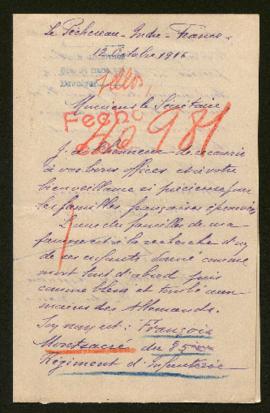 Le Pêchereau - Indre - France -
12 Octobre 1916
Monsieur le Secrétaire
46 981
J'ai l'honneur de recourir
à vos bons offices et à votre
bienveillance si précieuse pour
les familles françaises éprouvées
L'une des familles de ma
paroisse est à la recherche d'un
de ses enfants donné comme
mort tout d'abord puis
comme blessé et tombé aux
mains des Allemands.
Son nom est : François
Montsacré du 85
Régiment d'infanterie